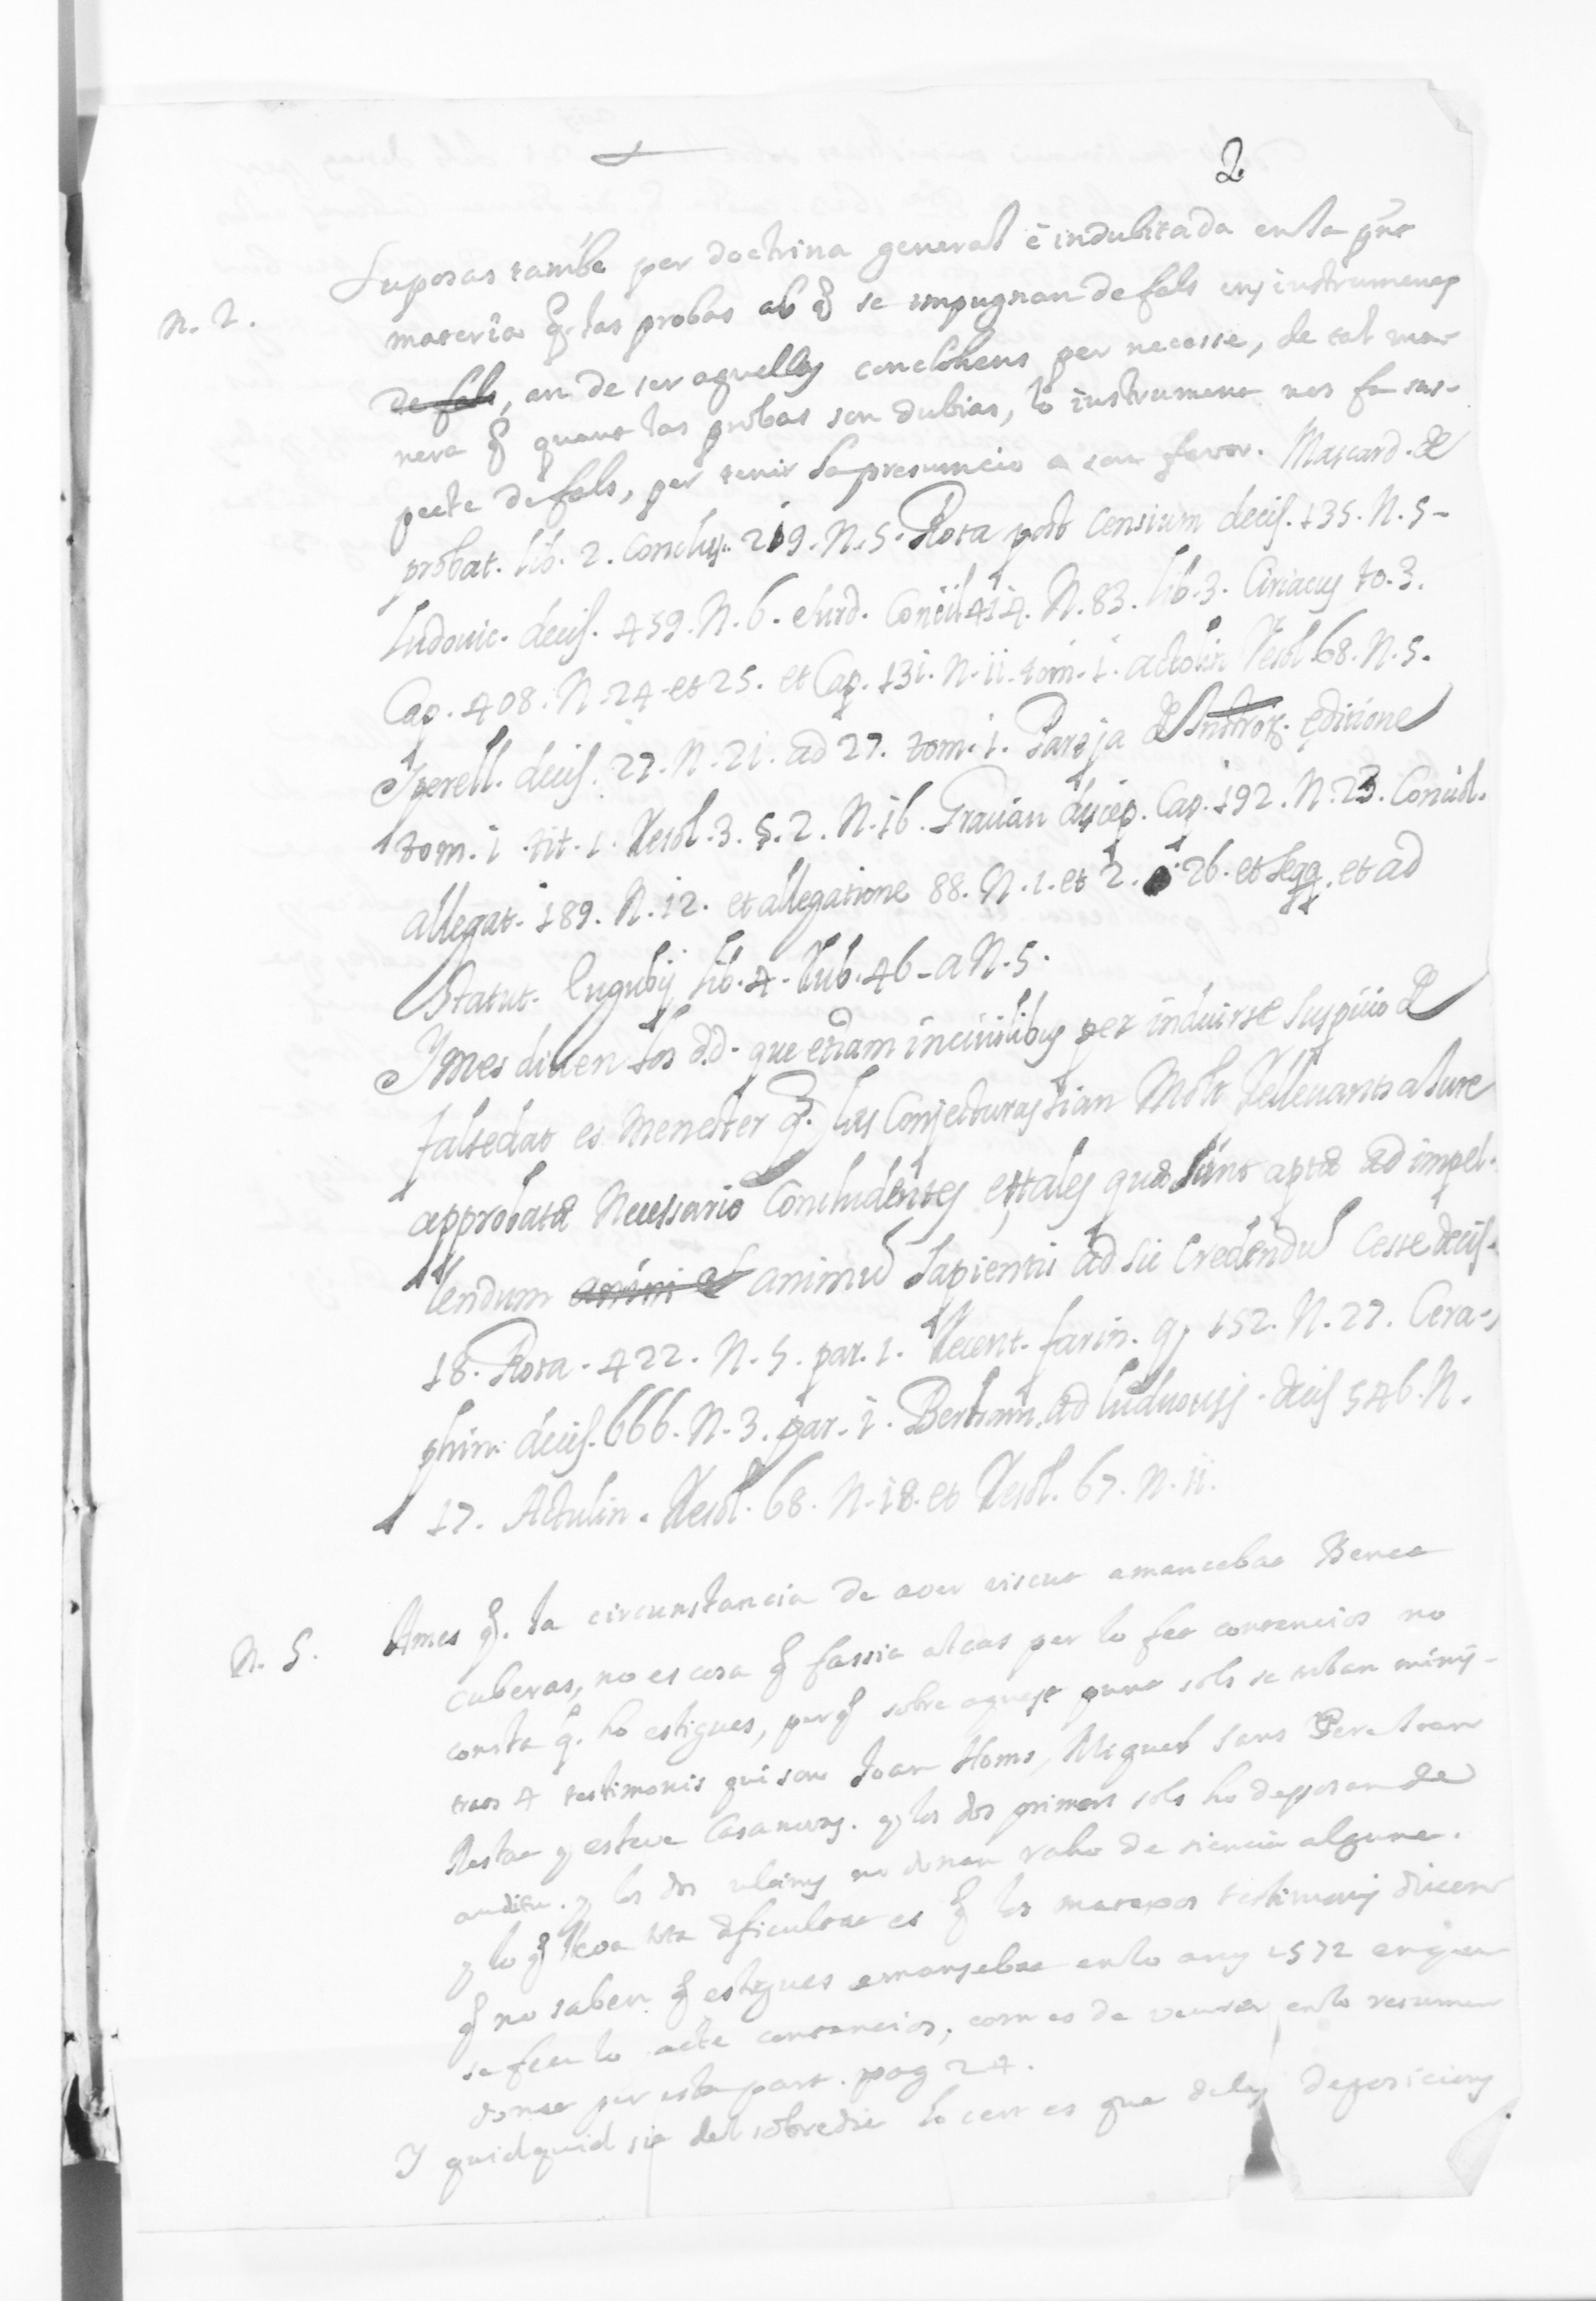 2
N. 2. Suposas també per doctrina general è indubitada en la pnt
materia q̃ las probas ab q̃ se impugnan de fals uns instruments
de fals, an de ser aquellas conclohens per necesse, de tal ma-
nera q̃ quant las probas son dubias, lo instrument nos fa sus-
pecte de fals, per tenir la presumcio a son favor. Mascard. de
probat. lib. 2. Conclus. 219. N. 5. Rota post Censium decis. 135. N. 5-
Ludovic. decis. 459. N. 6. Surd. Concil. 414. N. 83. lib. 3. Ciriacus to. 3.
Cap. 408. N. 24. et 25. et Cap. 131. N. 11. tom. 1. actolin Resol 68. N. 5.
Sperell. decis. 27. N. 21. ad 27. tom. 1. Pareja de editione
tom. 1. tit. 1. Resol. 3. §. 2. N. 16. Gratian discep. Cap. 192. N. 23. Conciol.
allegat. 189. N. 12. et allegatione 88. N. 1. et 2. 26. et seqq. et ad
Statut. Eugubij lib. 4. Rub. 46. a N. 5.
Y mes diuen los d.d. que etiam in civilibus per induirse suspicio de
falsedat es menester q̃. las Conjecturas sian molt rellevants a Iure
approbatæ necessario Concludentes, et tales quæ sunt aptæ ad impel-
lendum animi et animũ sapientis ad sic Credendũ decis.
18. Rota. 422. N. 5. par. 1. Recent. farin. q. 152. N. 27. Cera-
phin. decis. 666. N. 3. par. 1. ad decis 546. N.
17. Actulin. Resol. 68. N. 18. et Resol. 67. N. 11.
N. 5. Ames q̃. la circunstancia de aver viscut amancebat
Cuberas, no es cosa q̃ fassia al cas per lo fet contencios no
consta q̃. ho estigues, perq̃ sobre aquest punt sols se troban minis-
trats 4 testimonis qui son Joan Homs, Miquel Sans Pere Joan
y esteve Casanovas. y los dos primers sols ho deposan de
auditu. y los dos ultims no donan raho de siencia alguna.
y lo q̃ lleva tota dificultat es q̃ los matexos testimonis diuen
q̃ no saben q̃ estigues amansebat en lo any 1572 en que
se feu lo acte contencios, com es de veurer en lo resumen
donat per esta part. pag 24.
Y quidquid sie del sobredit lo cert es que deles deposicions